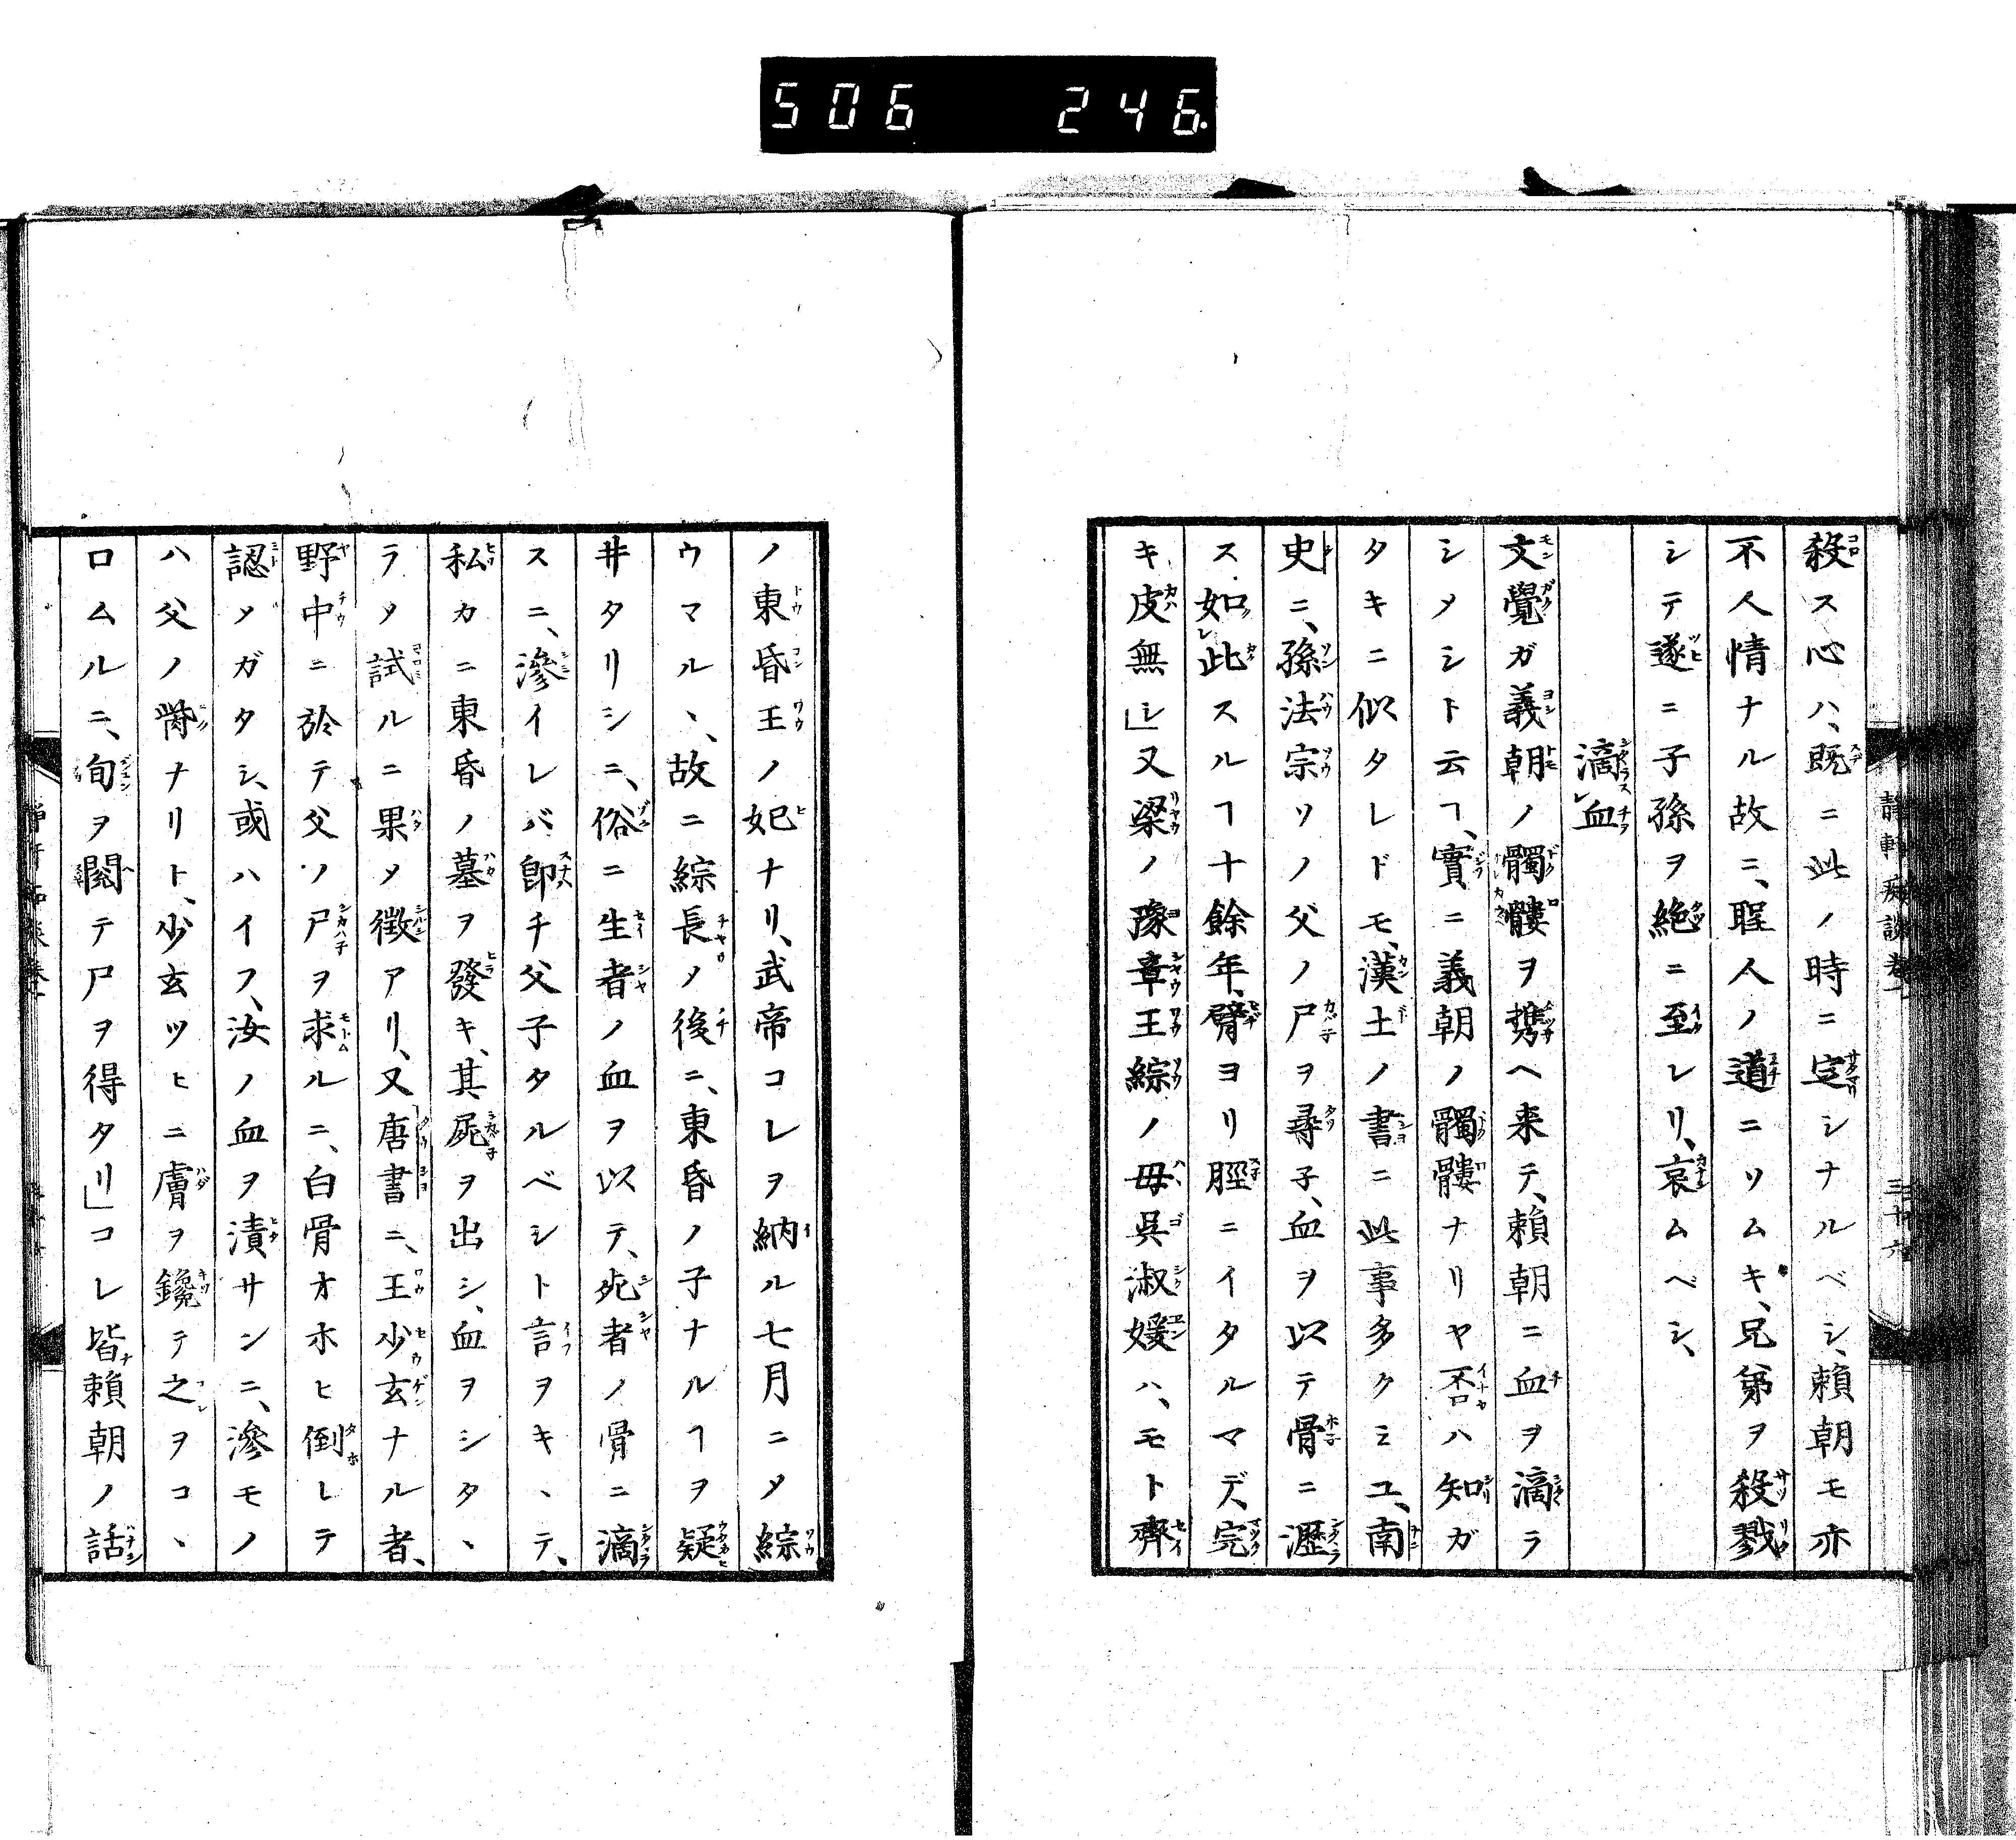 506 246.
殺ス心ハ、既ニ此ノ時ニ定シナルベシ、頼朝モ亦
不人情ナル故ニ、聖人ノ道ニソムキ、兄弟ヲ殺戮
シテ遂ニ子孫ヲ絶ニ至レリ、哀ムベシ、
滴レ血
文覺ガ義朝ノ髑髏ヲ携ヘ来テ、頼朝ニ血ヲ滴ラ
シメシト云ヿ、實ニ義朝ノ髑髏ナリヤ否ハ知ガ
タキニ似タレドモ、漢土ノ書ニ此事多クミユ、南
史ニ、孫法宗ソノ父ノ尸ヲ尋子、血ヲ以テ骨ニ瀝
ス如レ此スルヿ十餘年、臂ヨリ脛ニイタルマデ、完
キ皮無シ」又梁ノ豫章王綜ノ母呉淑媛ハ、モト齊
ノ東昏王ノ妃ナリ、武帝コレヲ納ル七月ニメ綜
ウマル、、故ニ綜長ノ後ニ、東昏ノ子ナルヿヲ疑
井タリシニ、俗ニ生者ノ血ヲ以テ、死者ノ骨ニ滴
スニ、滲イレバ即チ父子タルベシト言ヲキ、テ、
私カニ東昏ノ墓ヲ發キ、其屍ヲ出シ、血ヲシタ、
ラメ試ルニ果メ徴アリ、又唐書ニ、王少玄ナル者、
野中ニ於テ父ノ尸ヲ求ルニ、白骨オホヒ倒レテ
認メガタシ、或ハイフ、汝ノ血ヲ漬サンニ、滲モノ
ハ父ノ胔ナリト、少玄ツヒニ膚ヲ鑱テ之ヲコ、
ロムルニ、旬ヲ閱テ尸ヲ得タリ」コレ皆頼朝ノ話